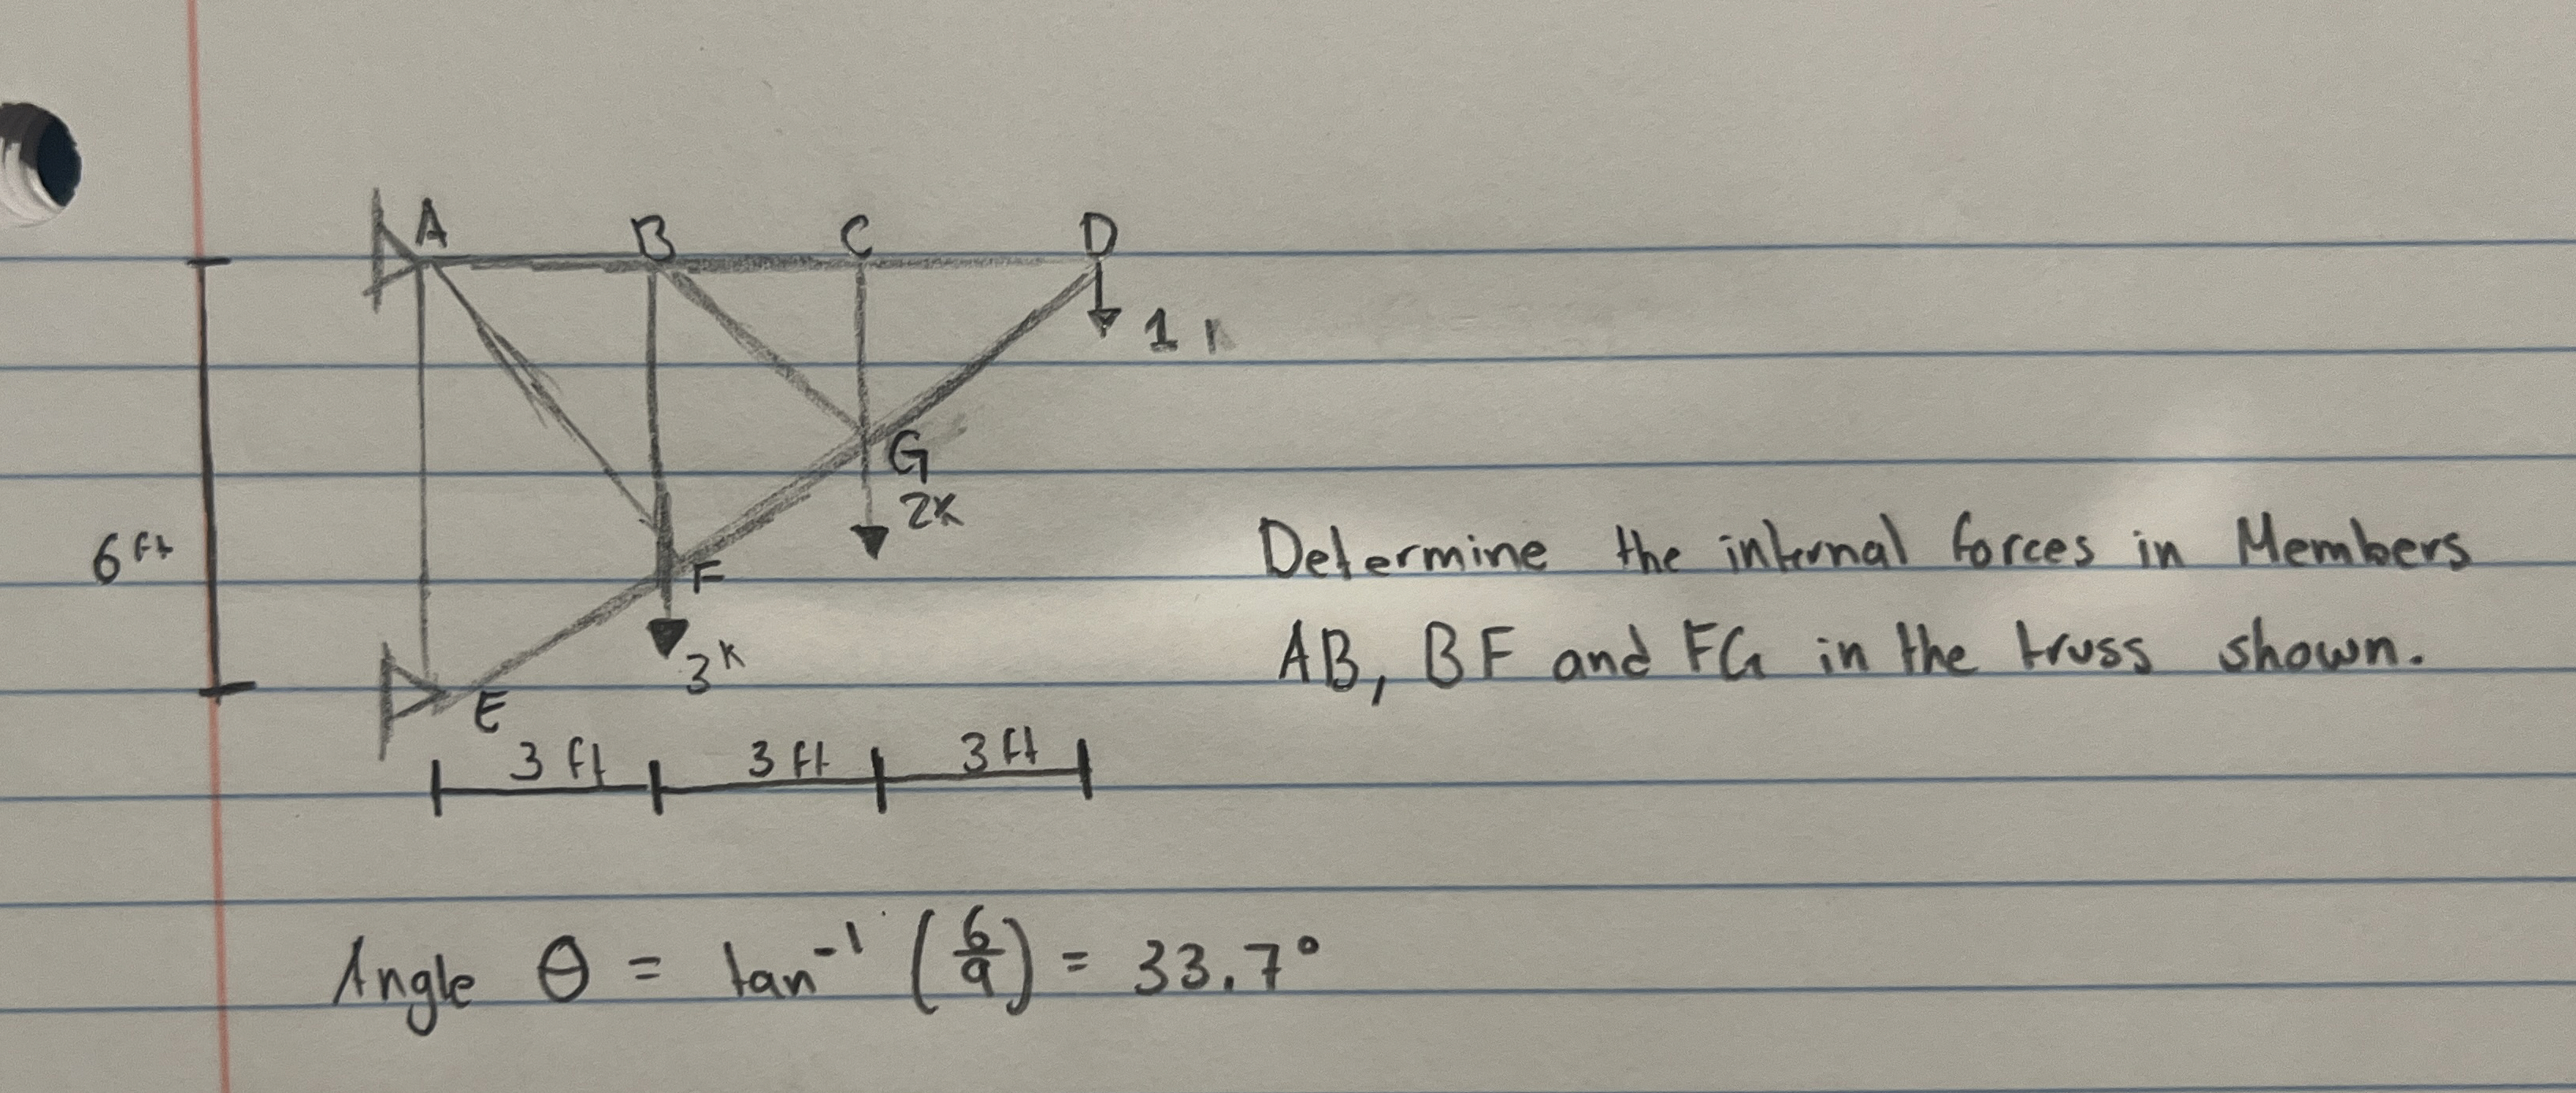 A B C D
1 k
G
2k
6 ft
F
3k
E
3 ft 3 ft 3 ft
Determine the internal forces in Members
AB, BF and FG in the truss shown.
Angle θ = tan⁻¹ (6/9) = 33.7°